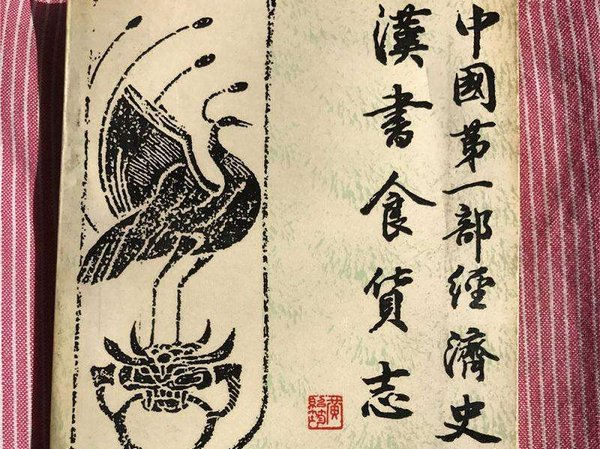 中國第一部經濟史
漢書食貨志